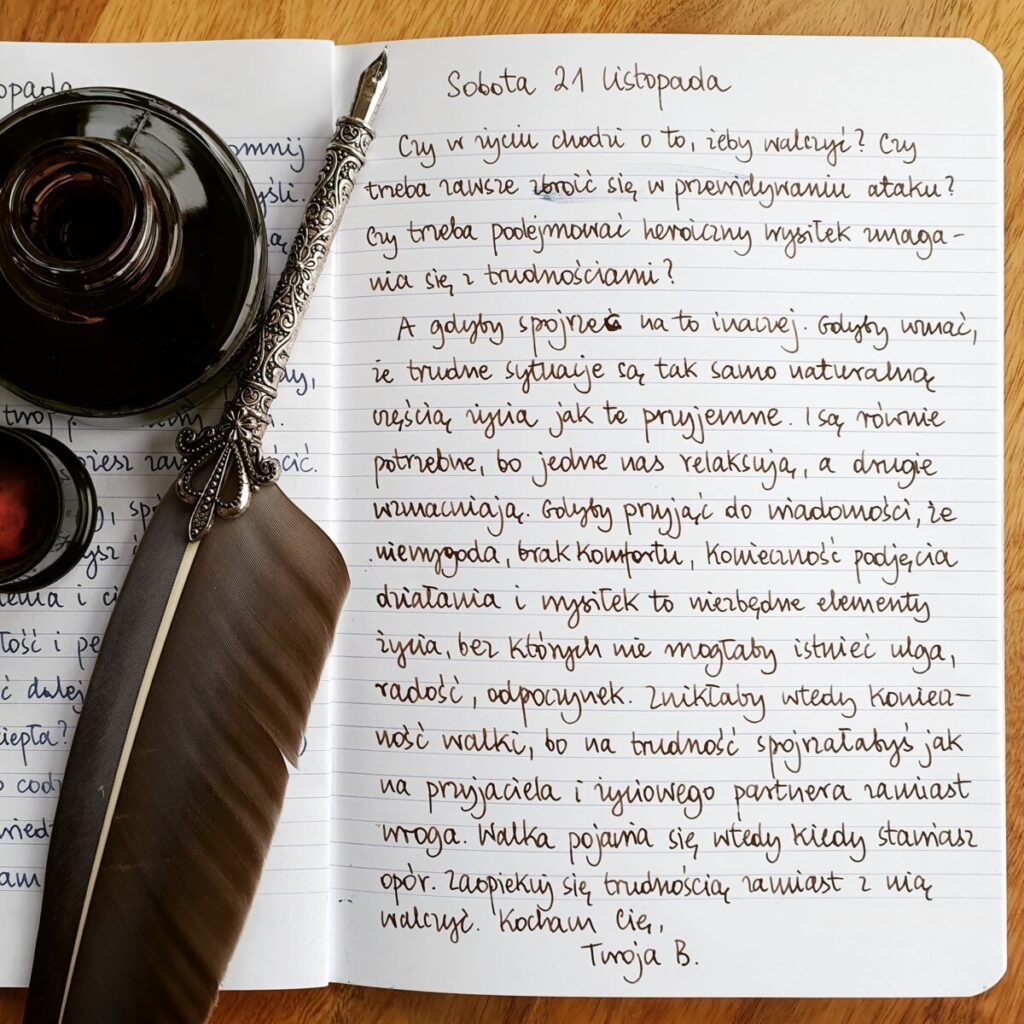 opada
omnij
yśli.
ą
dy,
twoj
iesz
cić.
, sp
ysz
enia i ci
łość i pe
ć dalej
iepła?
o codz
wiedz
am
Sobota 21 listopada
Czy w życiu chodzi o to, żeby walczyć? Czy
trzeba zawsze zbroić się w przewidywaniu ataku?
Czy trzeba podejmować heroiczny wysiłek zmaga-
nia się z trudnościami?
A gdyby spojrzeć na to inaczej. Gdyby uznać,
że trudne sytuacje są tak samo naturalną
częścią życia jak te przyjemne. I są równie
potrzebne, bo jedne nas relaksują, a drugie
wzmacniają. Gdyby przyjąć do wiadomości, że
niewygoda, brak komfortu, konieczność podjęcia
działania i wysiłek to niezbędne elementy
życia, bez których nie mogłaby istnieć ulga,
radość, odpoczynek. Znikłaby wtedy koniecz-
ność walki, bo na trudność spojrzałabyś jak
na przyjaciela i życiowego partnera zamiast
wroga. Walka pojawia się wtedy kiedy stawiasz
opór. Zaopiekuj się trudnością zamiast z nią
walczyć. Kocham Cię,
Twoja B.